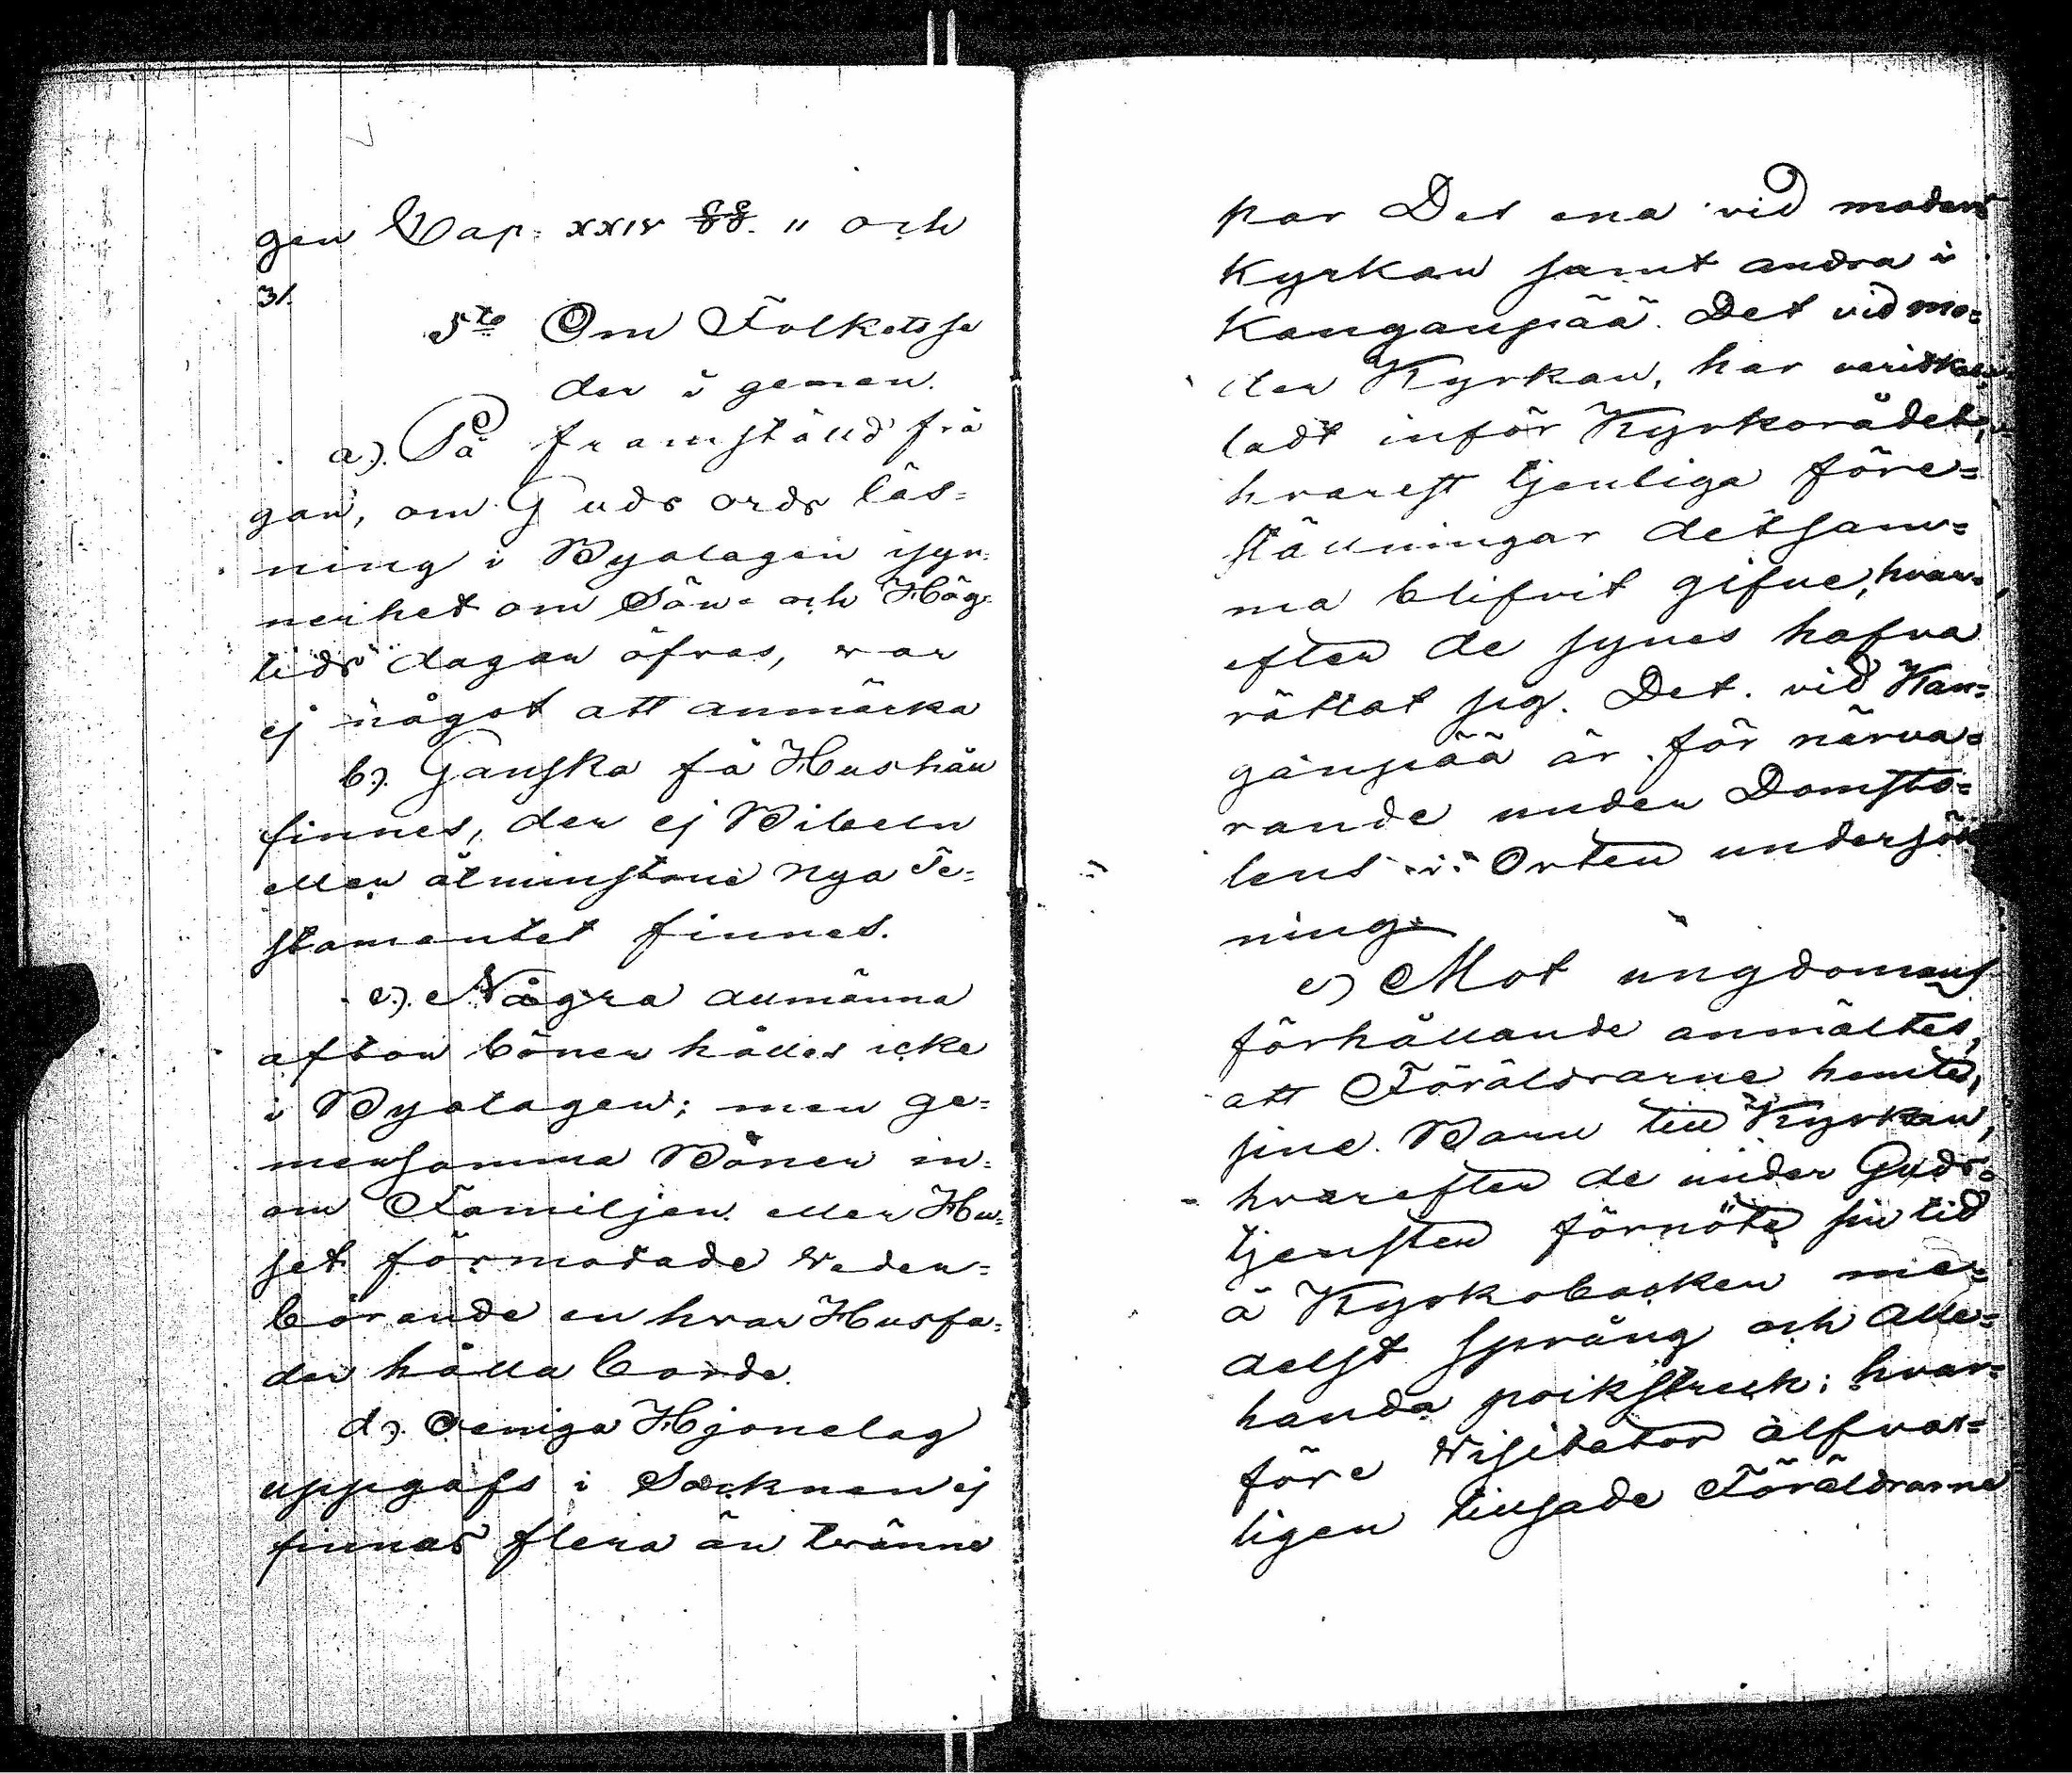 gen Cap: XXIV §§. 11 och
31.
5to Om Folkets se
der i gemen.
a). På framställd frå
gan, om Guds ords läs=
ning i Byalagen isyn=
nerhet om Sön= och Hög=
tids dagar öfvas, var
ej något att anmärka
b). Ganska få Hushåll
finnes, der ej Bibeln
eller åtminstone nya Te=
stamentet finnes.
c). Några allmänna
afton böner hålles icke
i Byalagen; men ge=
mensamma Böner in=
om Familjen eller Hu=
set förmodade veder=
börande en hvar Husfa=
der hålla borde.
d). Oeniga Hjonelag
uppgafs i Socknen ej
finnas flera än tvänne
par Det ena vid moders
Kyrkan samt andra i
Kanganpää. Det vid mo=
der Kyrkan, har varit kal
ladt inför Kyrkorådet,
hvarest tjenliga före=
ställningar detsam=
ma blifvit gifne, hvar=
efter de synes hafva
rättat sig. Det vid Kan=
ganpää är för närva=
rande under Domsto=
lens i Orten undersök
ning.
e) Mot ungdomens
förhållande anmältes,
att Föräldrarne hemta,
sine Barn till Kyrkan,
hvarefter de under Guds=
tjensten förnöta sin tid
å Kyrkobacken me=
delst språng och alle=
handa pojkstreck; hvar=
före Visitator alfvar=
ligen tillsade Föräldrarne